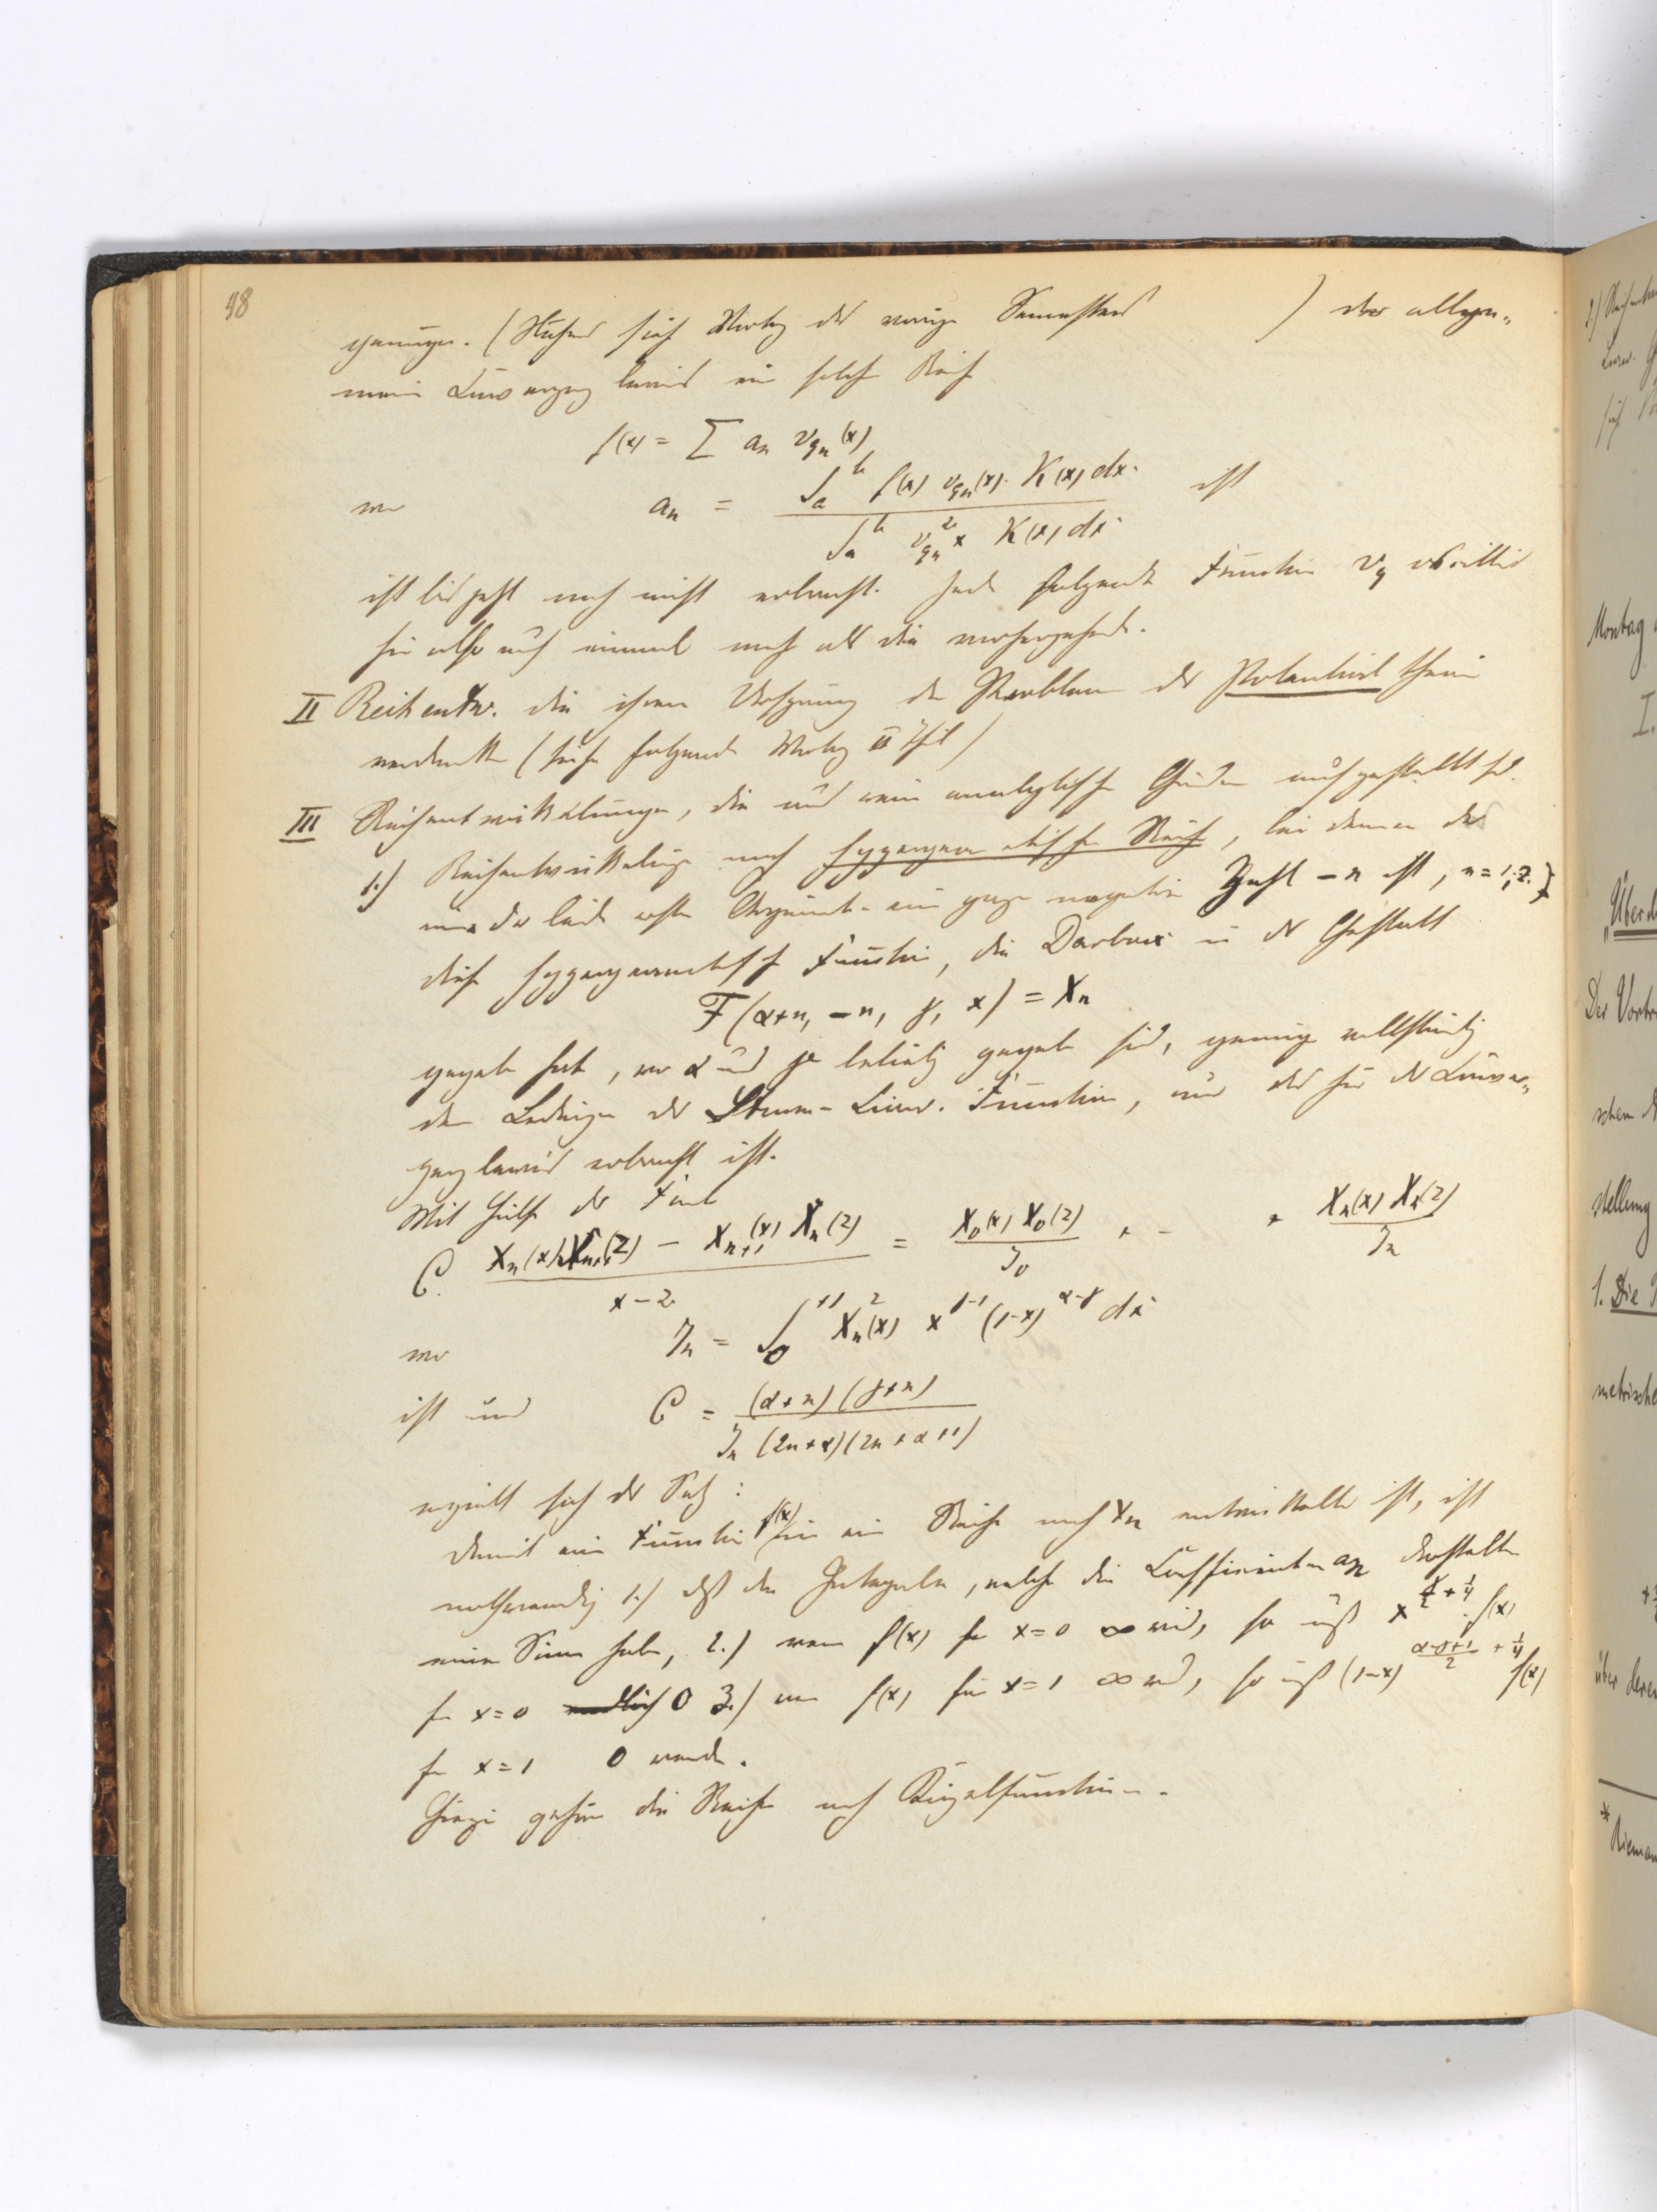 48
genügen. (Näheres siehe Vortrag des vorigen Semesters ) der allge-
meine Convergenzbeweis für solche Reihe
f(x) = Σ a_n v_{q_n}(x)
wo a_n = ∫_a^b f(x) v_{q_n}(x) K(x) dx / ∫_a^b v_{q_n}^2 x K(x) dx ist
ist bis jetzt noch nicht erbracht. Jede folgende Function v_q oscillirt
hier also auch einmal mehr als die vorhergehende.
II Reihenentw. die ihren Ursprung den Problemen der Potentialtheorie
verdanken (siehe folgenden Vortrag II Theil)
III Reihenentwickelungen, die aus rein analytischen Gründen aufgestellt sind.
1.) Reihenentwickelungen nach hypergeometrischen Reihen, bei denen das
eine der beiden ersten Argumente eine ganze negative Zahl -n ist, n = 1, 2.
diese hypergeometrische Function, die Darboux in der Gestalt
F(α+n, -n, γ, x) = X_n
gegeben hat, wo α und γ beliebig gegeben sind, genügen vollständig
den Bedingungen der Sturm-Liouv. Functionen, nur daß hier der Conver-
genzbeweis erbracht ist.
Mit Hülfe der Formel
C. (X_n(x) X_{n+1}(z) - X_{n+1}(x) X_n(z)) / (x-z) = X_0(x) X_0(z) / J_0 + - + X_n(x) X_n(z) / J_n
wo J_n = ∫_0^{+1} X_n^2(x) x^{γ-1} (1-x)^{α-γ} dx
ist und C = (α+n)(γ+n) / J_n (2n+α)(2n+α+1)
ergiebt sich der Satz:
damit eine Function f(x) in eine Reihe nach X_n entwickelbar ist, ist
nothwendig 1.) daß die Integrale, welche die Coefficienten a_n darstellen
einen Sinn haben, 2.) wenn f(x) für x=0 ∞ wird, so muß x^{γ/2 + 1/4} f(x)
für x=0 endlich 0 3.) wenn f(x) für x=1 ∞ wird, so muß (1-x)^{(α-γ+1)/2 + 1/4} f(x)
für x=1 0 werden.
Hierzu gehören die Reihen nach Kugelfunctionen.
Montag
I.
"Über d
Der Vortr
schen
stellung
1. Die
metrische
über deren
* Rieman